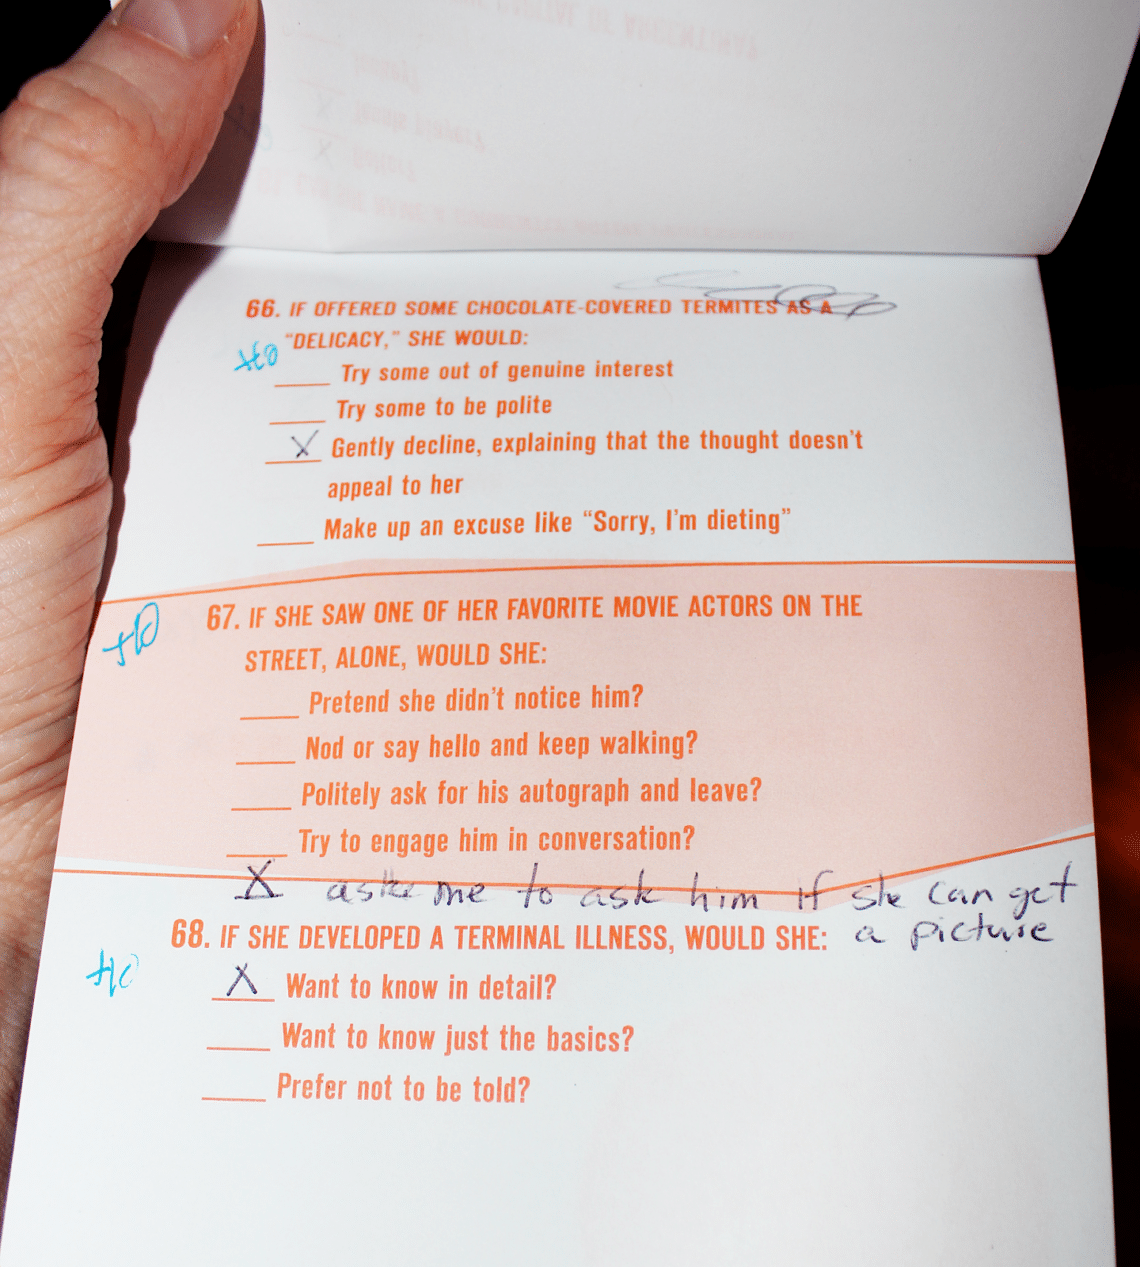 66. IF OFFERED SOME CHOCOLATE-COVERED TERMITES AS A
"DELICACY," SHE WOULD:
+10
____ Try some out of genuine interest
____ Try some to be polite
X Gently decline, explaining that the thought doesn't
appeal to her
____ Make up an excuse like "Sorry, I'm dieting"
+10
67. IF SHE SAW ONE OF HER FAVORITE MOVIE ACTORS ON THE
STREET, ALONE, WOULD SHE:
____ Pretend she didn't notice him?
____ Nod or say hello and keep walking?
____ Politely ask for his autograph and leave?
____ Try to engage him in conversation?
X me to ask him if she can get
a picture
68. IF SHE DEVELOPED A TERMINAL ILLNESS, WOULD SHE:
+10
X Want to know in detail?
____ Want to know just the basics?
____ Prefer not to be told?